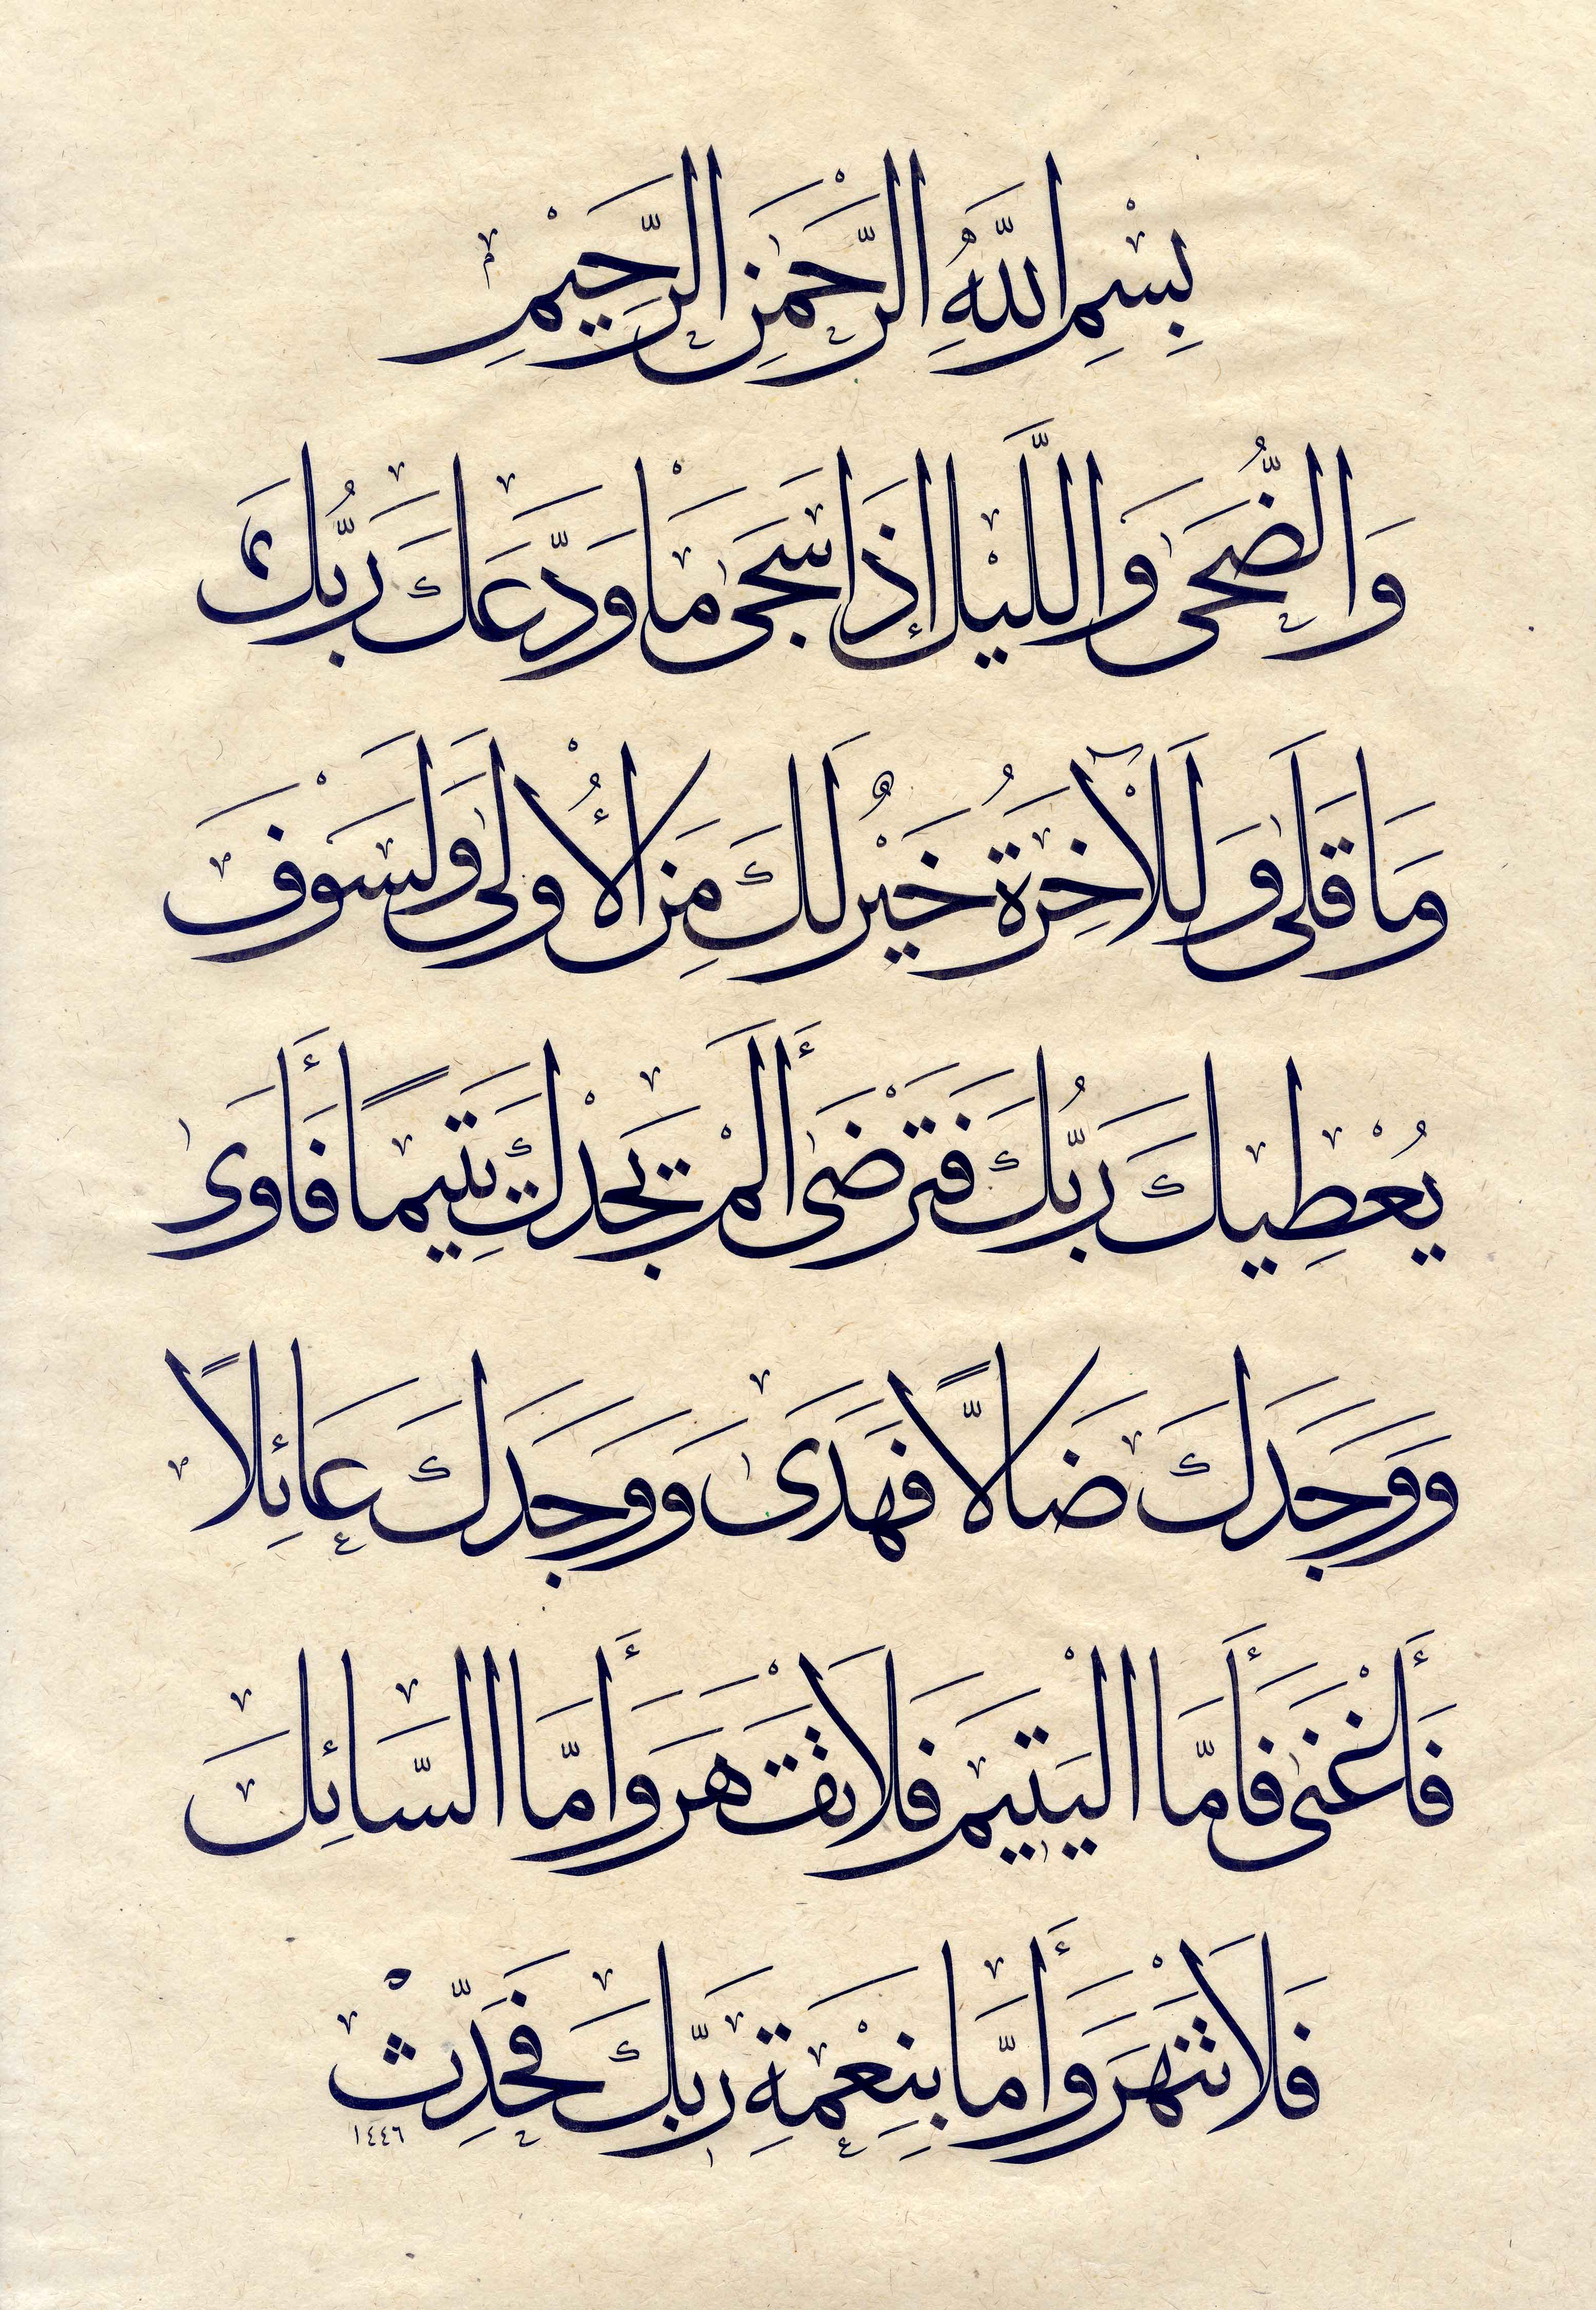 بِسْمِ اللَّهِ الرَّحْمَنِ الرَّحِيْمِ
وَالضُّحَى وَاللَّيْلِ إِذَا سَجَى مَا وَدَّعَكَ رَبُّكَ
وَمَا قَلَى وَلَلْآخِرَةُ خَيْرٌ لَكَ مِنَ الْأُولَى وَلَسَوْفَ
يُعْطِيكَ رَبُّكَ فَتَرْضَى أَلَمْ يَجِدْكَ يَتِيمًا فَأَوَى
وَوَجَدَكَ ضَالًّا فَهَدَى وَوَجَدَكَ عَائِلًا
فَأَغْنَى فَأَمَّا الْيَتِيمَ فَلَا تَقْهَرْ وَأَمَّا السَّائِلَ
فَلَا تَنْهَرْ وَأَمَّا بِنِعْمَةِ رَبِّكَ فَحَدِّثْ
١٤٤٦